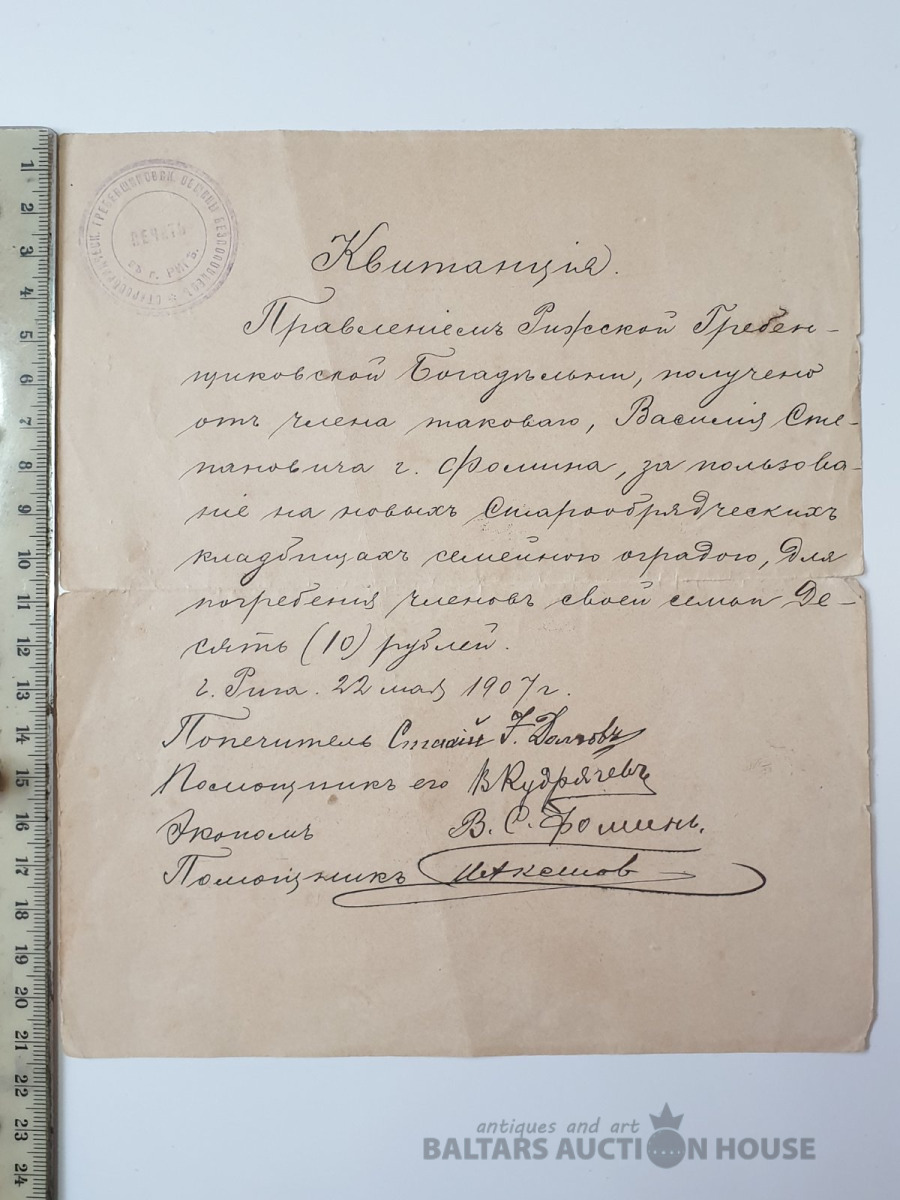 СТАРООБРЯДЧЕСК. ГРЕБЕНЩИКОВСК. ОБЩИНЫ БЕЗПОПОВЦЕВЪ
ПЕЧАТЬ
въ г. РИГѢ.
Квитанція.
Правленіемъ Рижской Гребен-
щиковской Богадѣльни, получено
отъ члена таковаго, Василія Сте-
пановича г. Фомина, за пользова-
ніе на новыхъ Старообрядческихъ
кладбищахъ семейною оградою, для
погребенія членовъ своей семьи Де-
сять (10) рублей.
г. Рига. 22 мая 1907 г.
Попечитель
Помощникъ его В Кудрячевъ
Экономъ В. С. Фоминъ.
Помощникъ
1
2
3
4
5
6
7
8
9
10
11
12
13
14
15
16
17
18
19
20
21
22
23
24
antiques and art
BALTARS AUCTION HOUSE